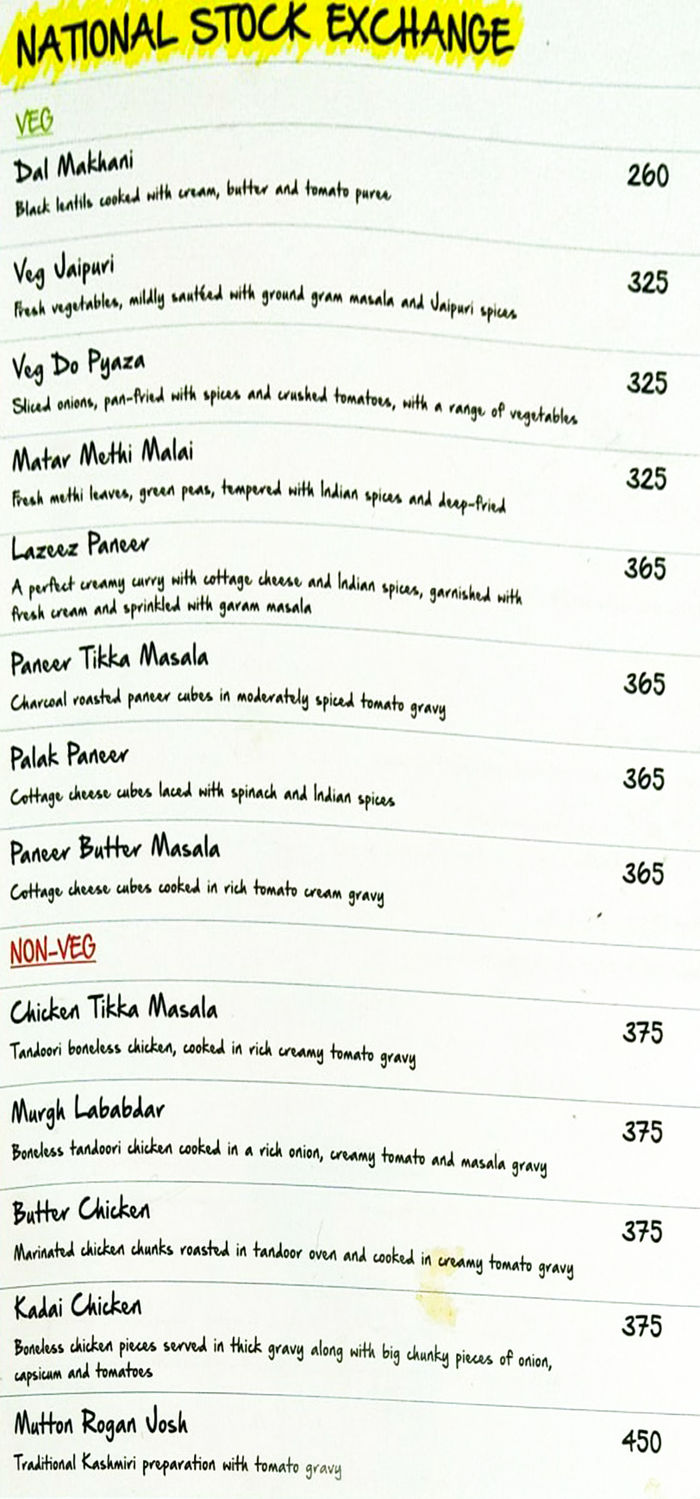 NATIONAL STOCK EXCHANGE
VEG
Dal Makhani 260
Black lentils cooked with cream, butter and tomato puree
Veg Jaipuri 325
Fresh vegetables, mildly sautéed with ground gram masala and Jaipuri spices
Veg Do Pyaza 325
Sliced onions, pan-fried with spices and crushed tomatoes, with a range of vegetables
Matar Methi Malai 325
Fresh methi leaves, green peas, tempered with Indian spices and deep-fried
Lazeez Paneer 365
A perfect creamy curry with cottage cheese and Indian spices, garnished with
fresh cream and sprinkled with garam masala
Paneer Tikka Masala 365
Charcoal roasted paneer cubes in moderately spiced tomato gravy
Palak Paneer 365
Cottage cheese cubes laced with spinach and Indian spices
Paneer Butter Masala 365
Cottage cheese cubes cooked in rich tomato cream gravy
NON-VEG
Chicken Tikka Masala 375
Tandoori boneless chicken, cooked in rich creamy tomato gravy
Murgh Lababdar 375
Boneless tandoori chicken cooked in a rich onion, creamy tomato and masala gravy
Butter Chicken 375
Marinated chicken chunks roasted in tandoor oven and cooked in creamy tomato gravy
Kadai Chicken 375
Boneless chicken pieces served in thick gravy along with big chunky pieces of onion,
capsicum and tomatoes
Mutton Rogan Josh 450
Traditional Kashmiri preparation with tomato gravy